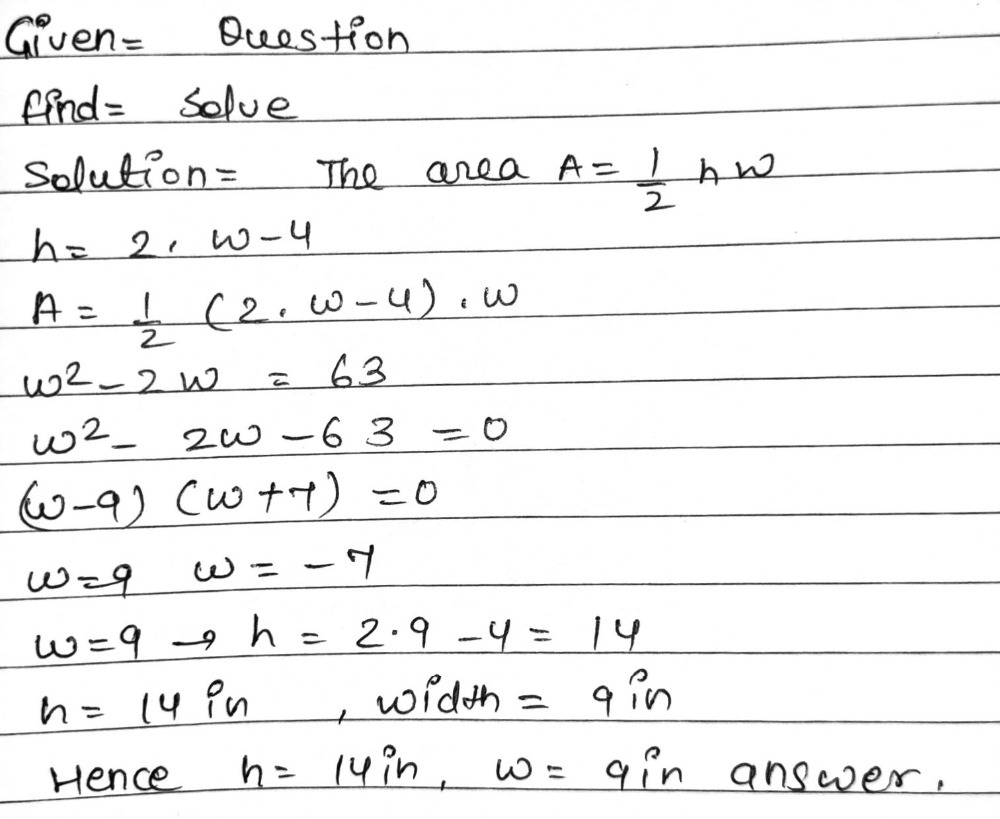 Given= Question
find= Solve
Solution= The area A= 1/2 h w
h= 2. w-4
A= 1/2 (2. w-4) . w
w² - 2w = 63
w² - 2w - 63 = 0
(w-9) (w+7) = 0
w=9 w= -7
w=9 → h = 2·9 -4 = 14
h= 14 in , width = 9 in
Hence h= 14in, w= 9in answer.